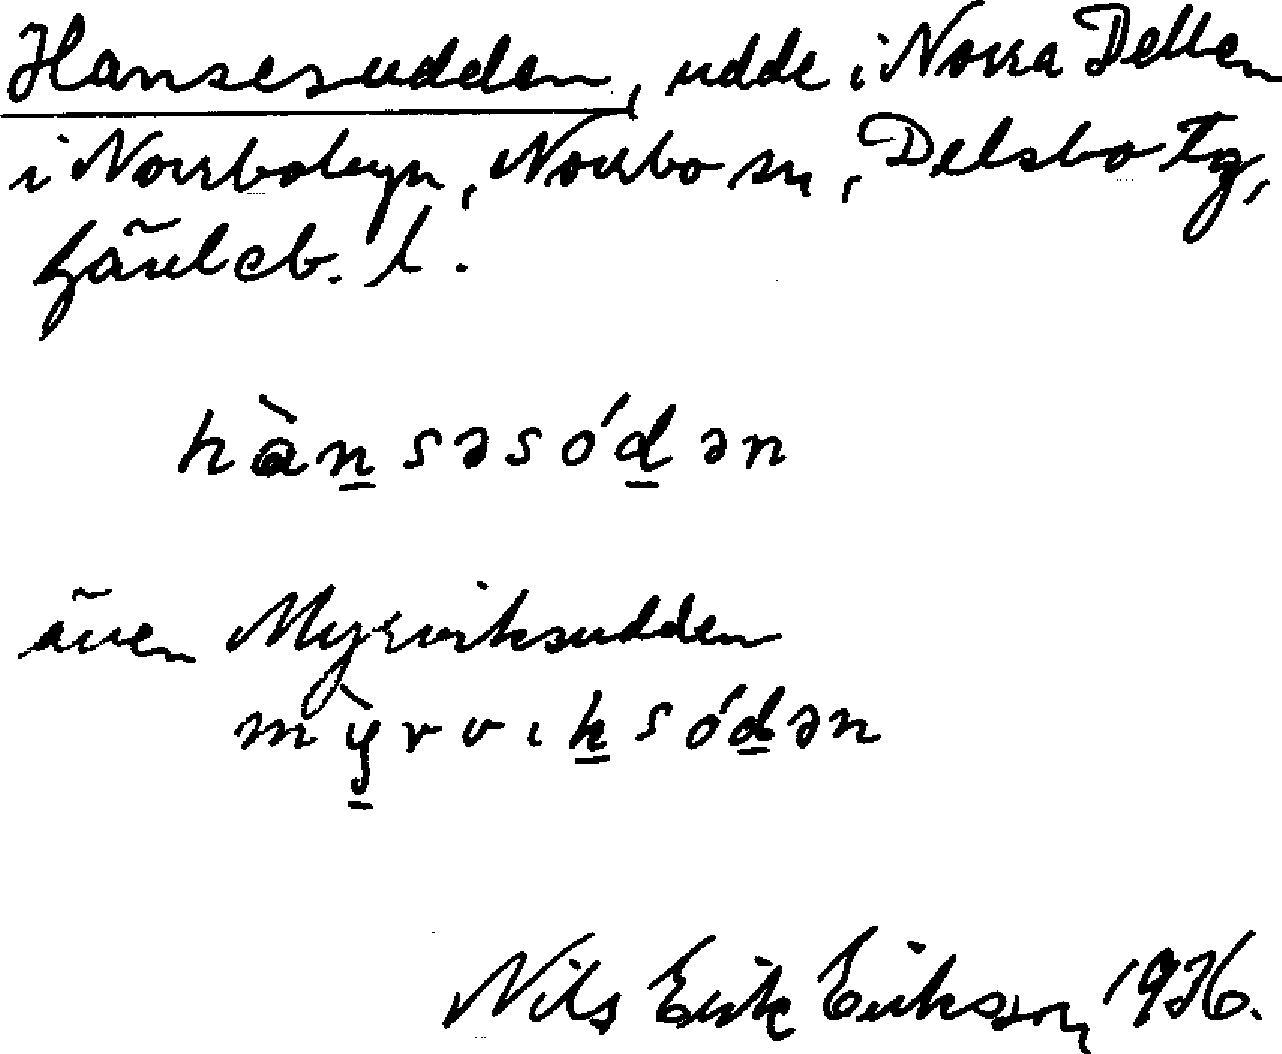 Hansesudden, udde i Norra Dellen
i Norrbobyn, Norrbo sn, Delsbo tg,
Gävleb. l.
hàn̲səsód̲ən
även Myrviksudden
mỳ̲rvık̲sód̲ən
Nils Erik Erikson, 1936.